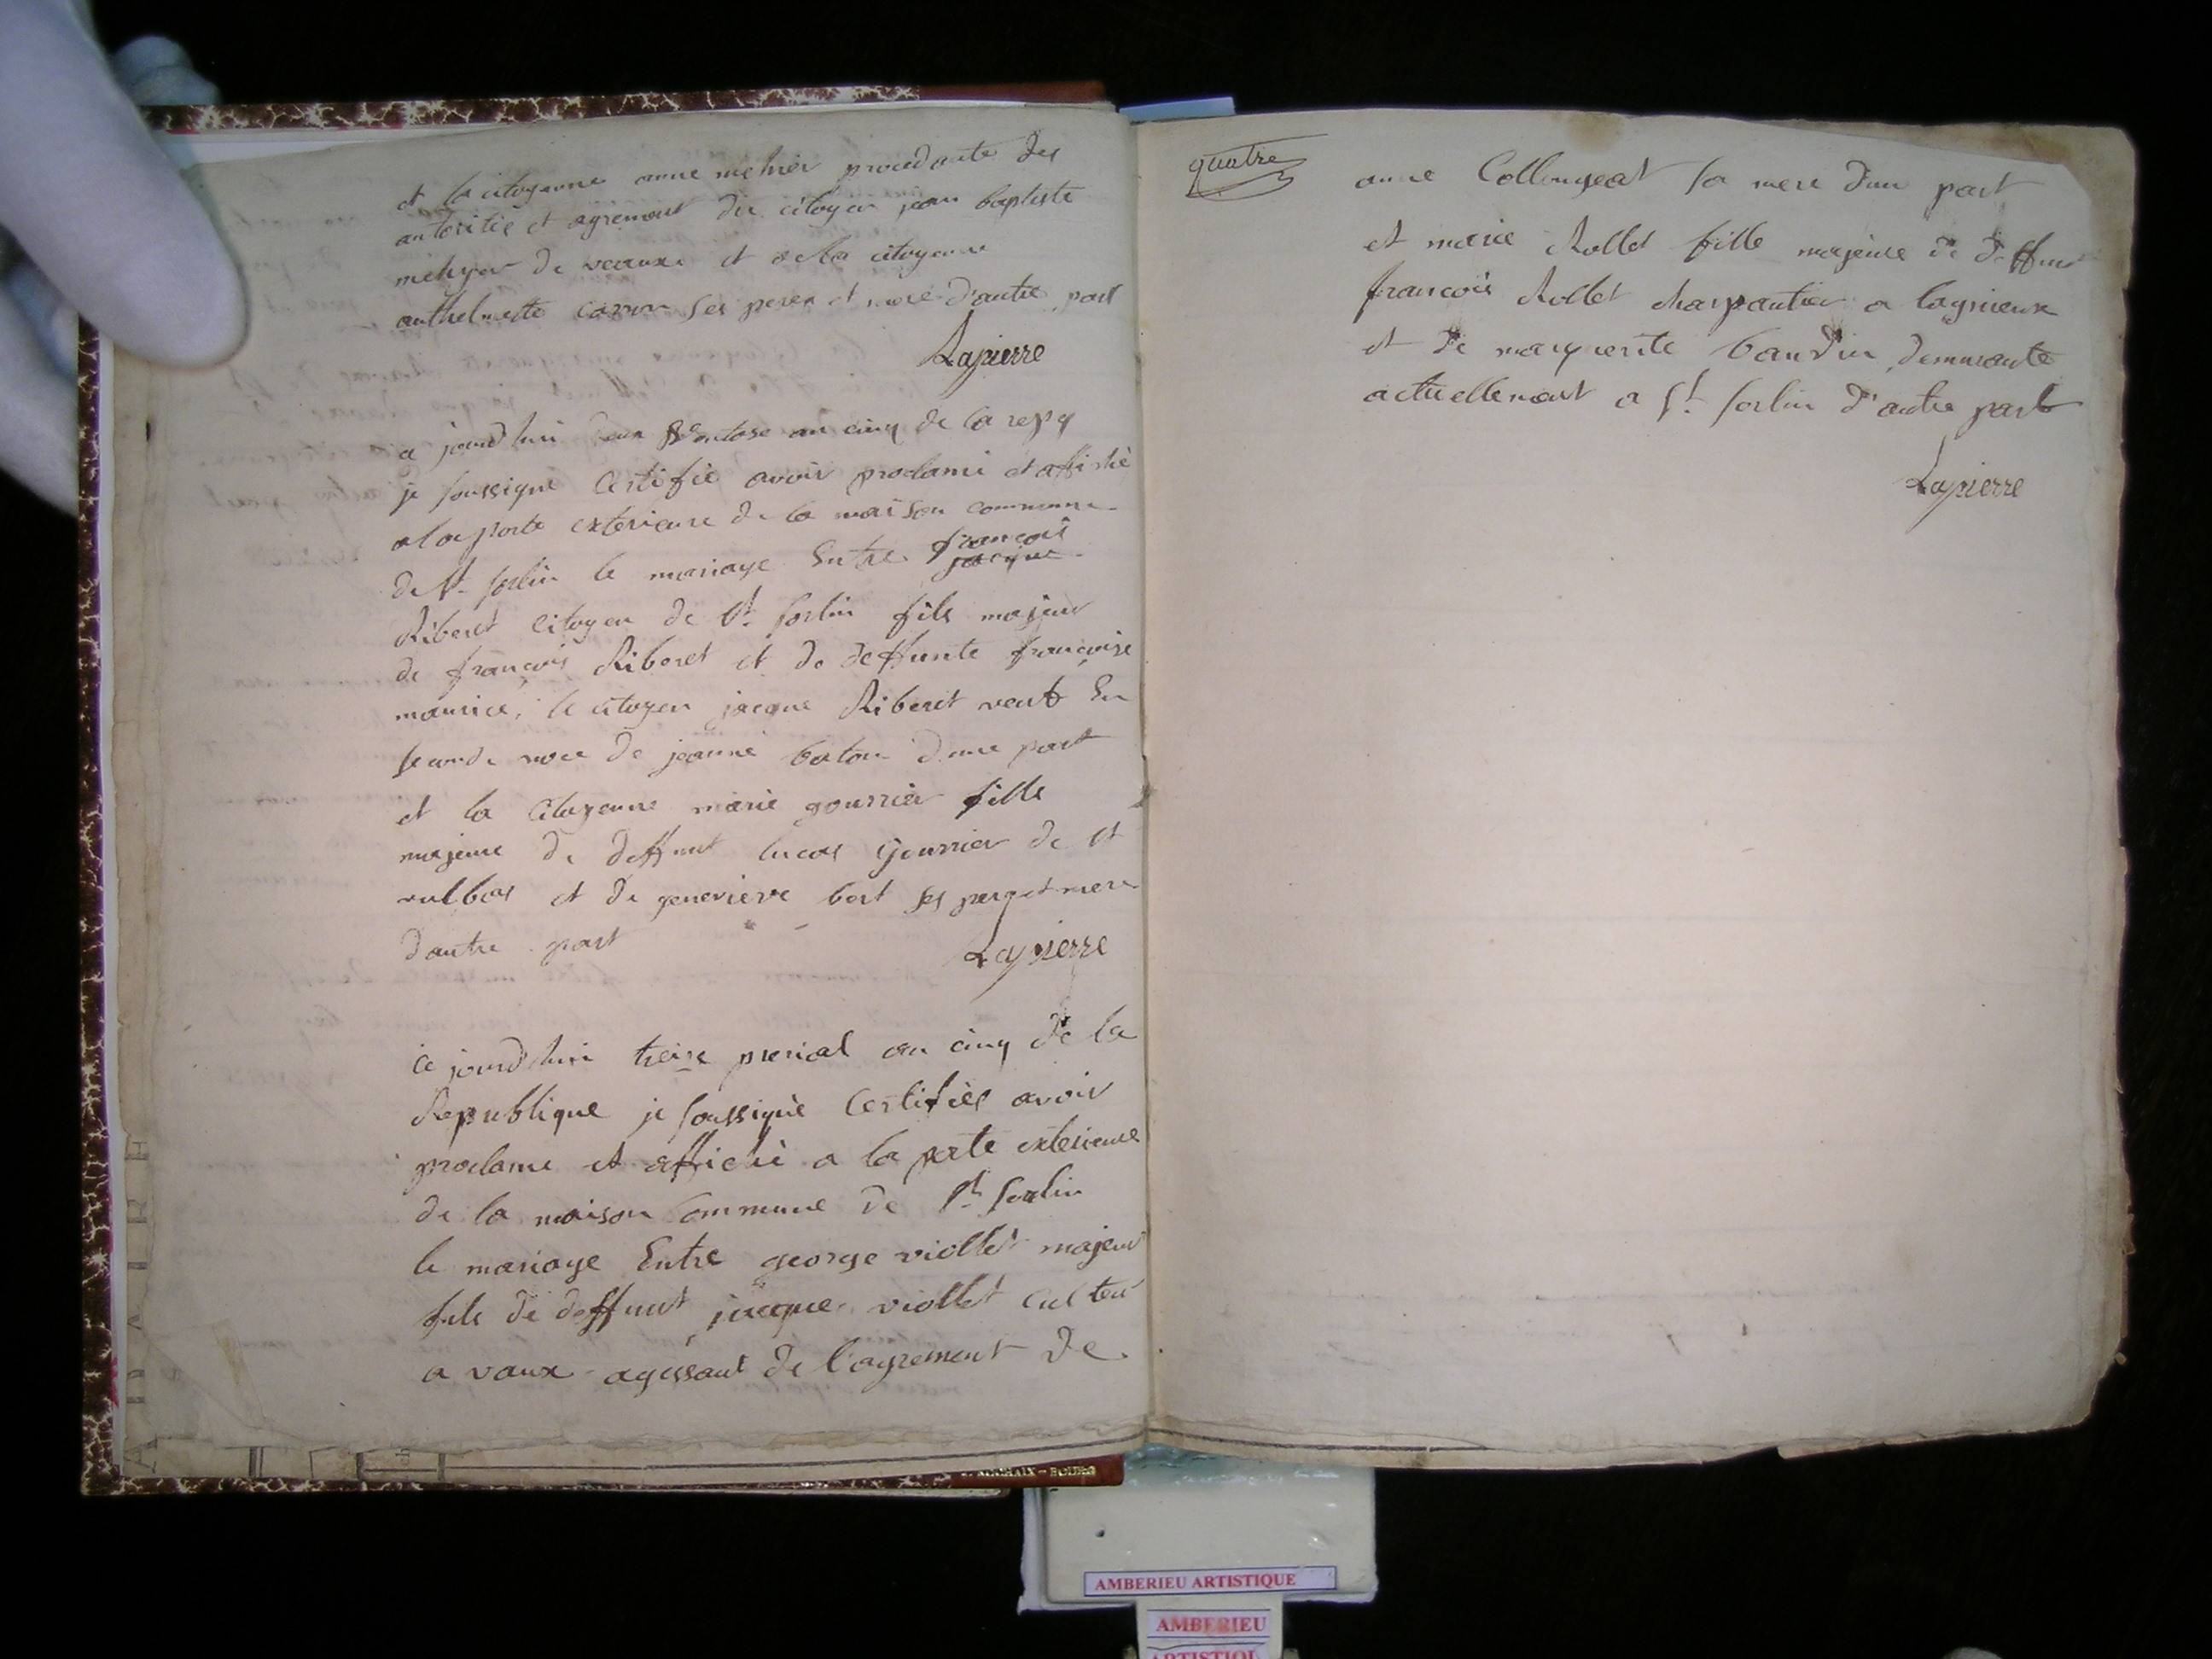 et la citoyenne anne mehier procedante des
autoritiè et agrement du citoyen jean baptiste
mehyer de veaux et de la citoyenne
anthelmette caron ses peres et mere d'autre part
Lapierre
a jourd'hui deux ventose an cinq de la repq
je soussigné Certifie avoir proclamé et affiché
a la porte exterieure de la maison commune
de st sorlin le mariage Entre françois
jacque
Riberet citoyen de st sorlin fils majeur
de françois Riberet et de deffunte françoise
maurice, le citoyen jacque Riberet veuf En
seconde noce de jeanne baton d'une part
et la Citoyenne marie gourrier fille
majeure de deffunt lucas gourrier de st
vulbas et de genevieve bort ses pere et mere
d'autre part
Lapierre
Ce jourd'hui treize prerial an cinq de la
Republique je soussignè Certifiès avoir
proclame et affichè a la porte exterieure
de la maison commune de st sorlin
le mariage Entre george viollet majeur
fils de deffunt jacque viollet cul teur
a vaux agissant de l'agrement de
quatre
anne Collongeat sa mere d'une part
et marie Rollet fille majeure de deffunt
françois Rollet charpantier a lagnieux
et de marguerite baudin demeurante
actuellement a st sorlin d'autre part
Lapierre
AMBERIEU ARTISTIQUE
AMBERIEU